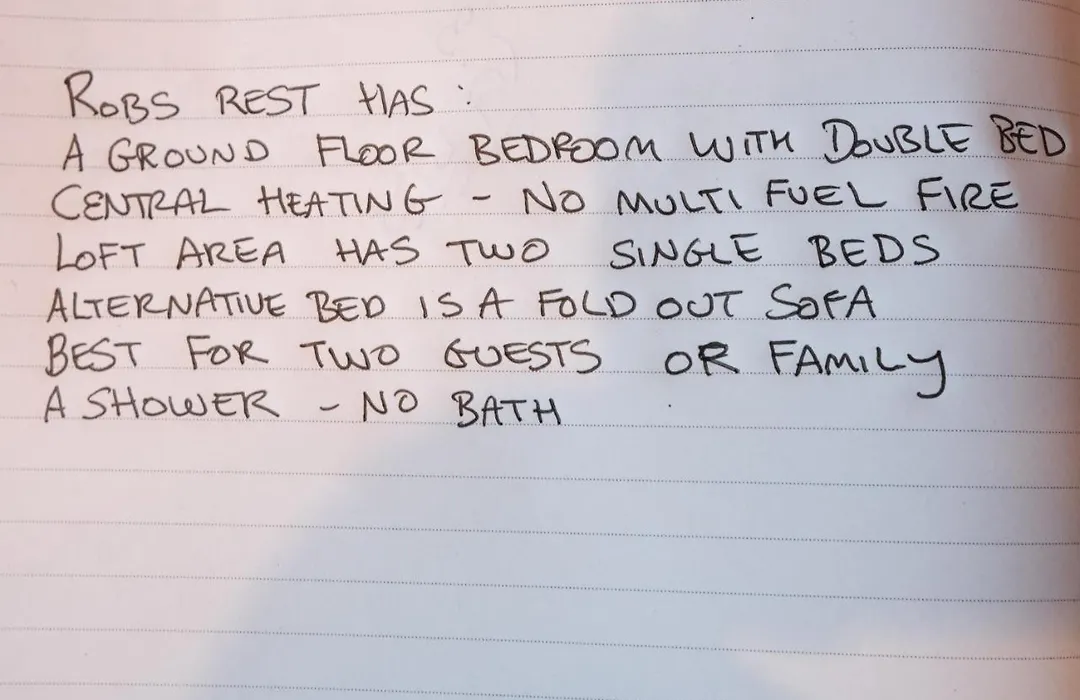 ROBS REST HAS :
A GROUND FLOOR BEDROOM WITH DOUBLE BED
CENTRAL HEATING - NO MULTI FUEL FIRE
LOFT AREA HAS TWO SINGLE BEDS
ALTERNATIVE BED IS A FOLD OUT SOFA
BEST FOR TWO GUESTS OR FAMILY
A SHOWER - NO BATH